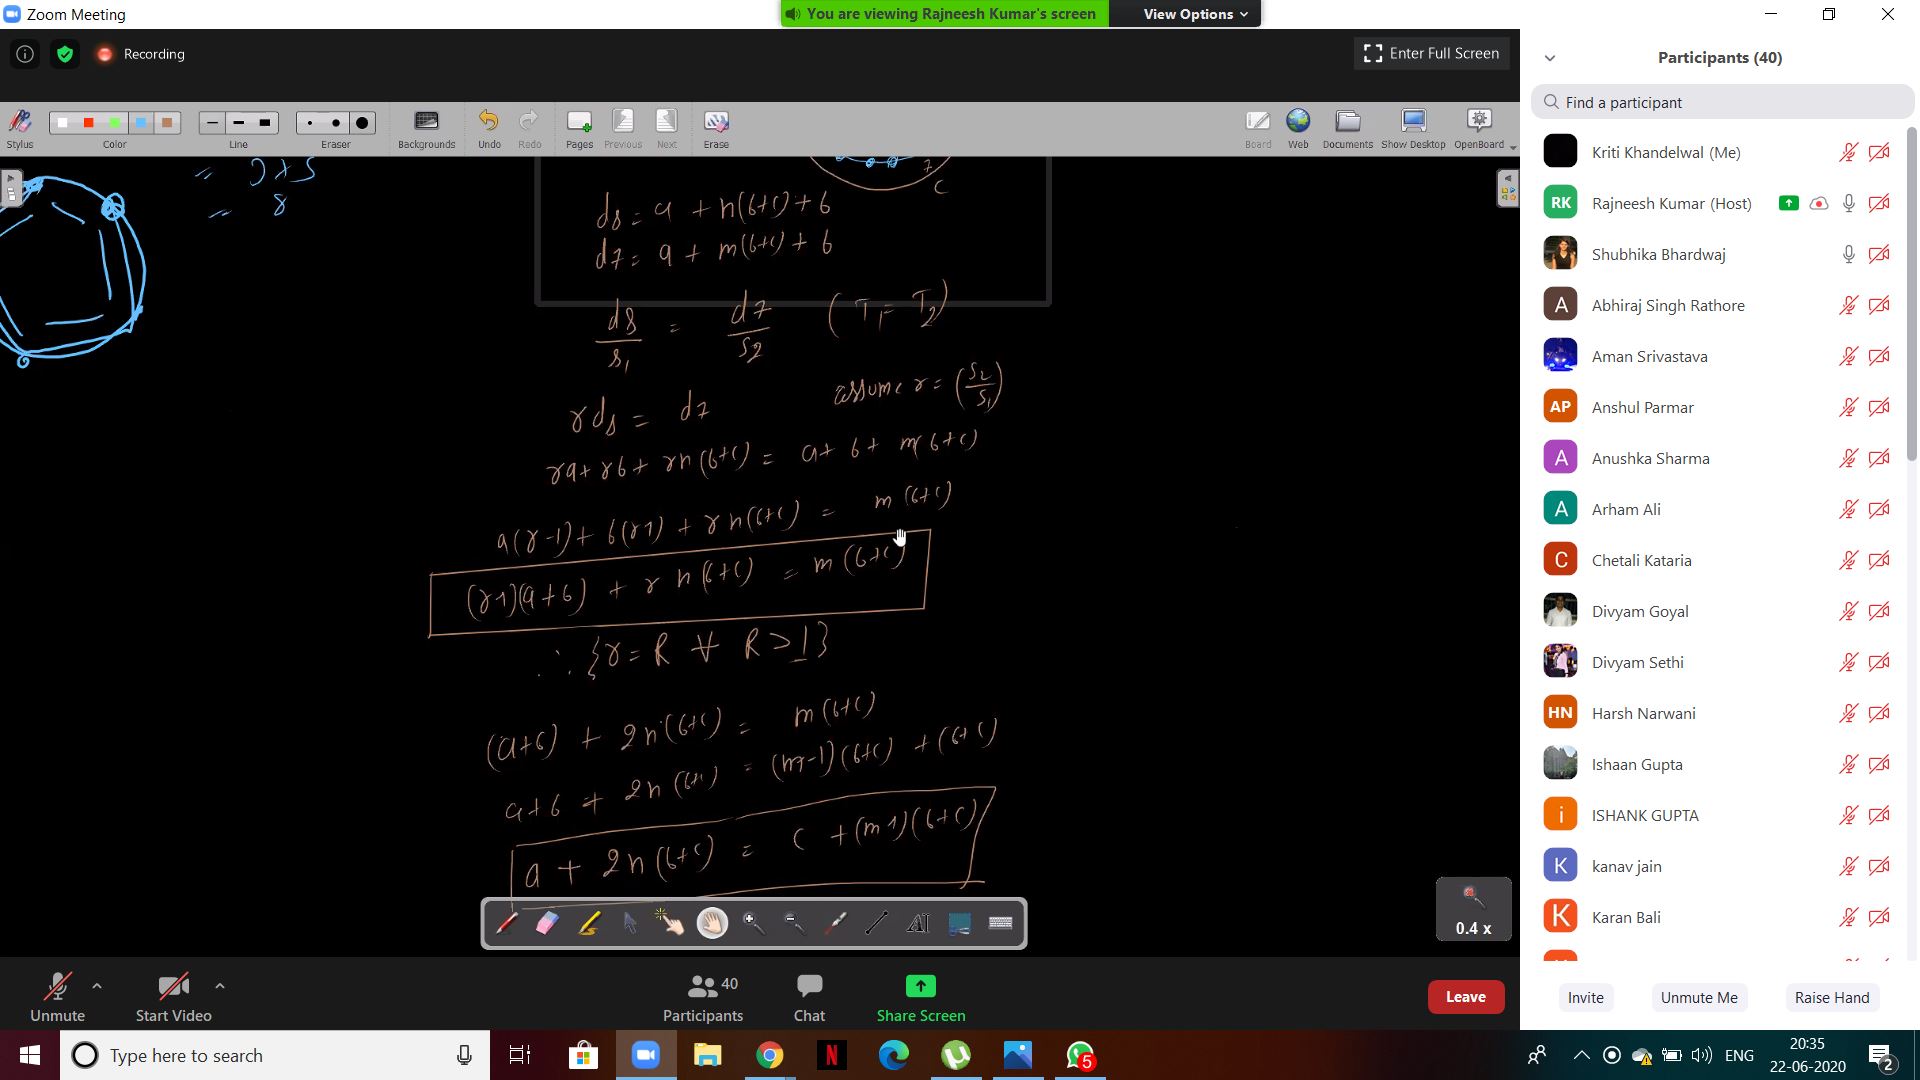 Zoom Meeting
You are viewing Rajneesh Kumar's screen
View Options
Recording
Enter Full Screen
Stylus
Color
Line
Eraser
Backgrounds
Undo
Redo
Pages
Previous
Next
Erase
Board
Web
Documents
Show Desktop
OpenBoard
= 8
C
ds = a + n(b+c) + b
df = a + m(b+c) + b
ds/s1 = df/s2 (T1 = T2)
rds = df assume r = (s2/s1)
ra + rb + rn(b+c) = a + b + m(b+c)
a(r-1) + b(r-1) + rn(b+c) = m(b+c)
(r-1)(a+b) + r n(b+c) = m(b+c)
∴ {r = R ∀ R > 1}
(a+b) + 2n(b+c) = m(b+c)
a+b + 2n(b+c) = (m-1)(b+c) + (b+c)
a + 2n(b+c) = c + (m-1)(b+c)
0.4 x
Unmute
Start Video
40
Participants
Chat
Share Screen
Leave
Participants (40)
Find a participant
Kriti Khandelwal (Me)
RK Rajneesh Kumar (Host)
Shubhika Bhardwaj
A Abhiraj Singh Rathore
Aman Srivastava
AP Anshul Parmar
A Anushka Sharma
A Arham Ali
C Chetali Kataria
Divyam Goyal
Divyam Sethi
HN Harsh Narwani
Ishaan Gupta
i ISHANK GUPTA
K kanav jain
K Karan Bali
Invite
Unmute Me
Raise Hand
Type here to search
5
ENG
20:35
22-06-2020
2